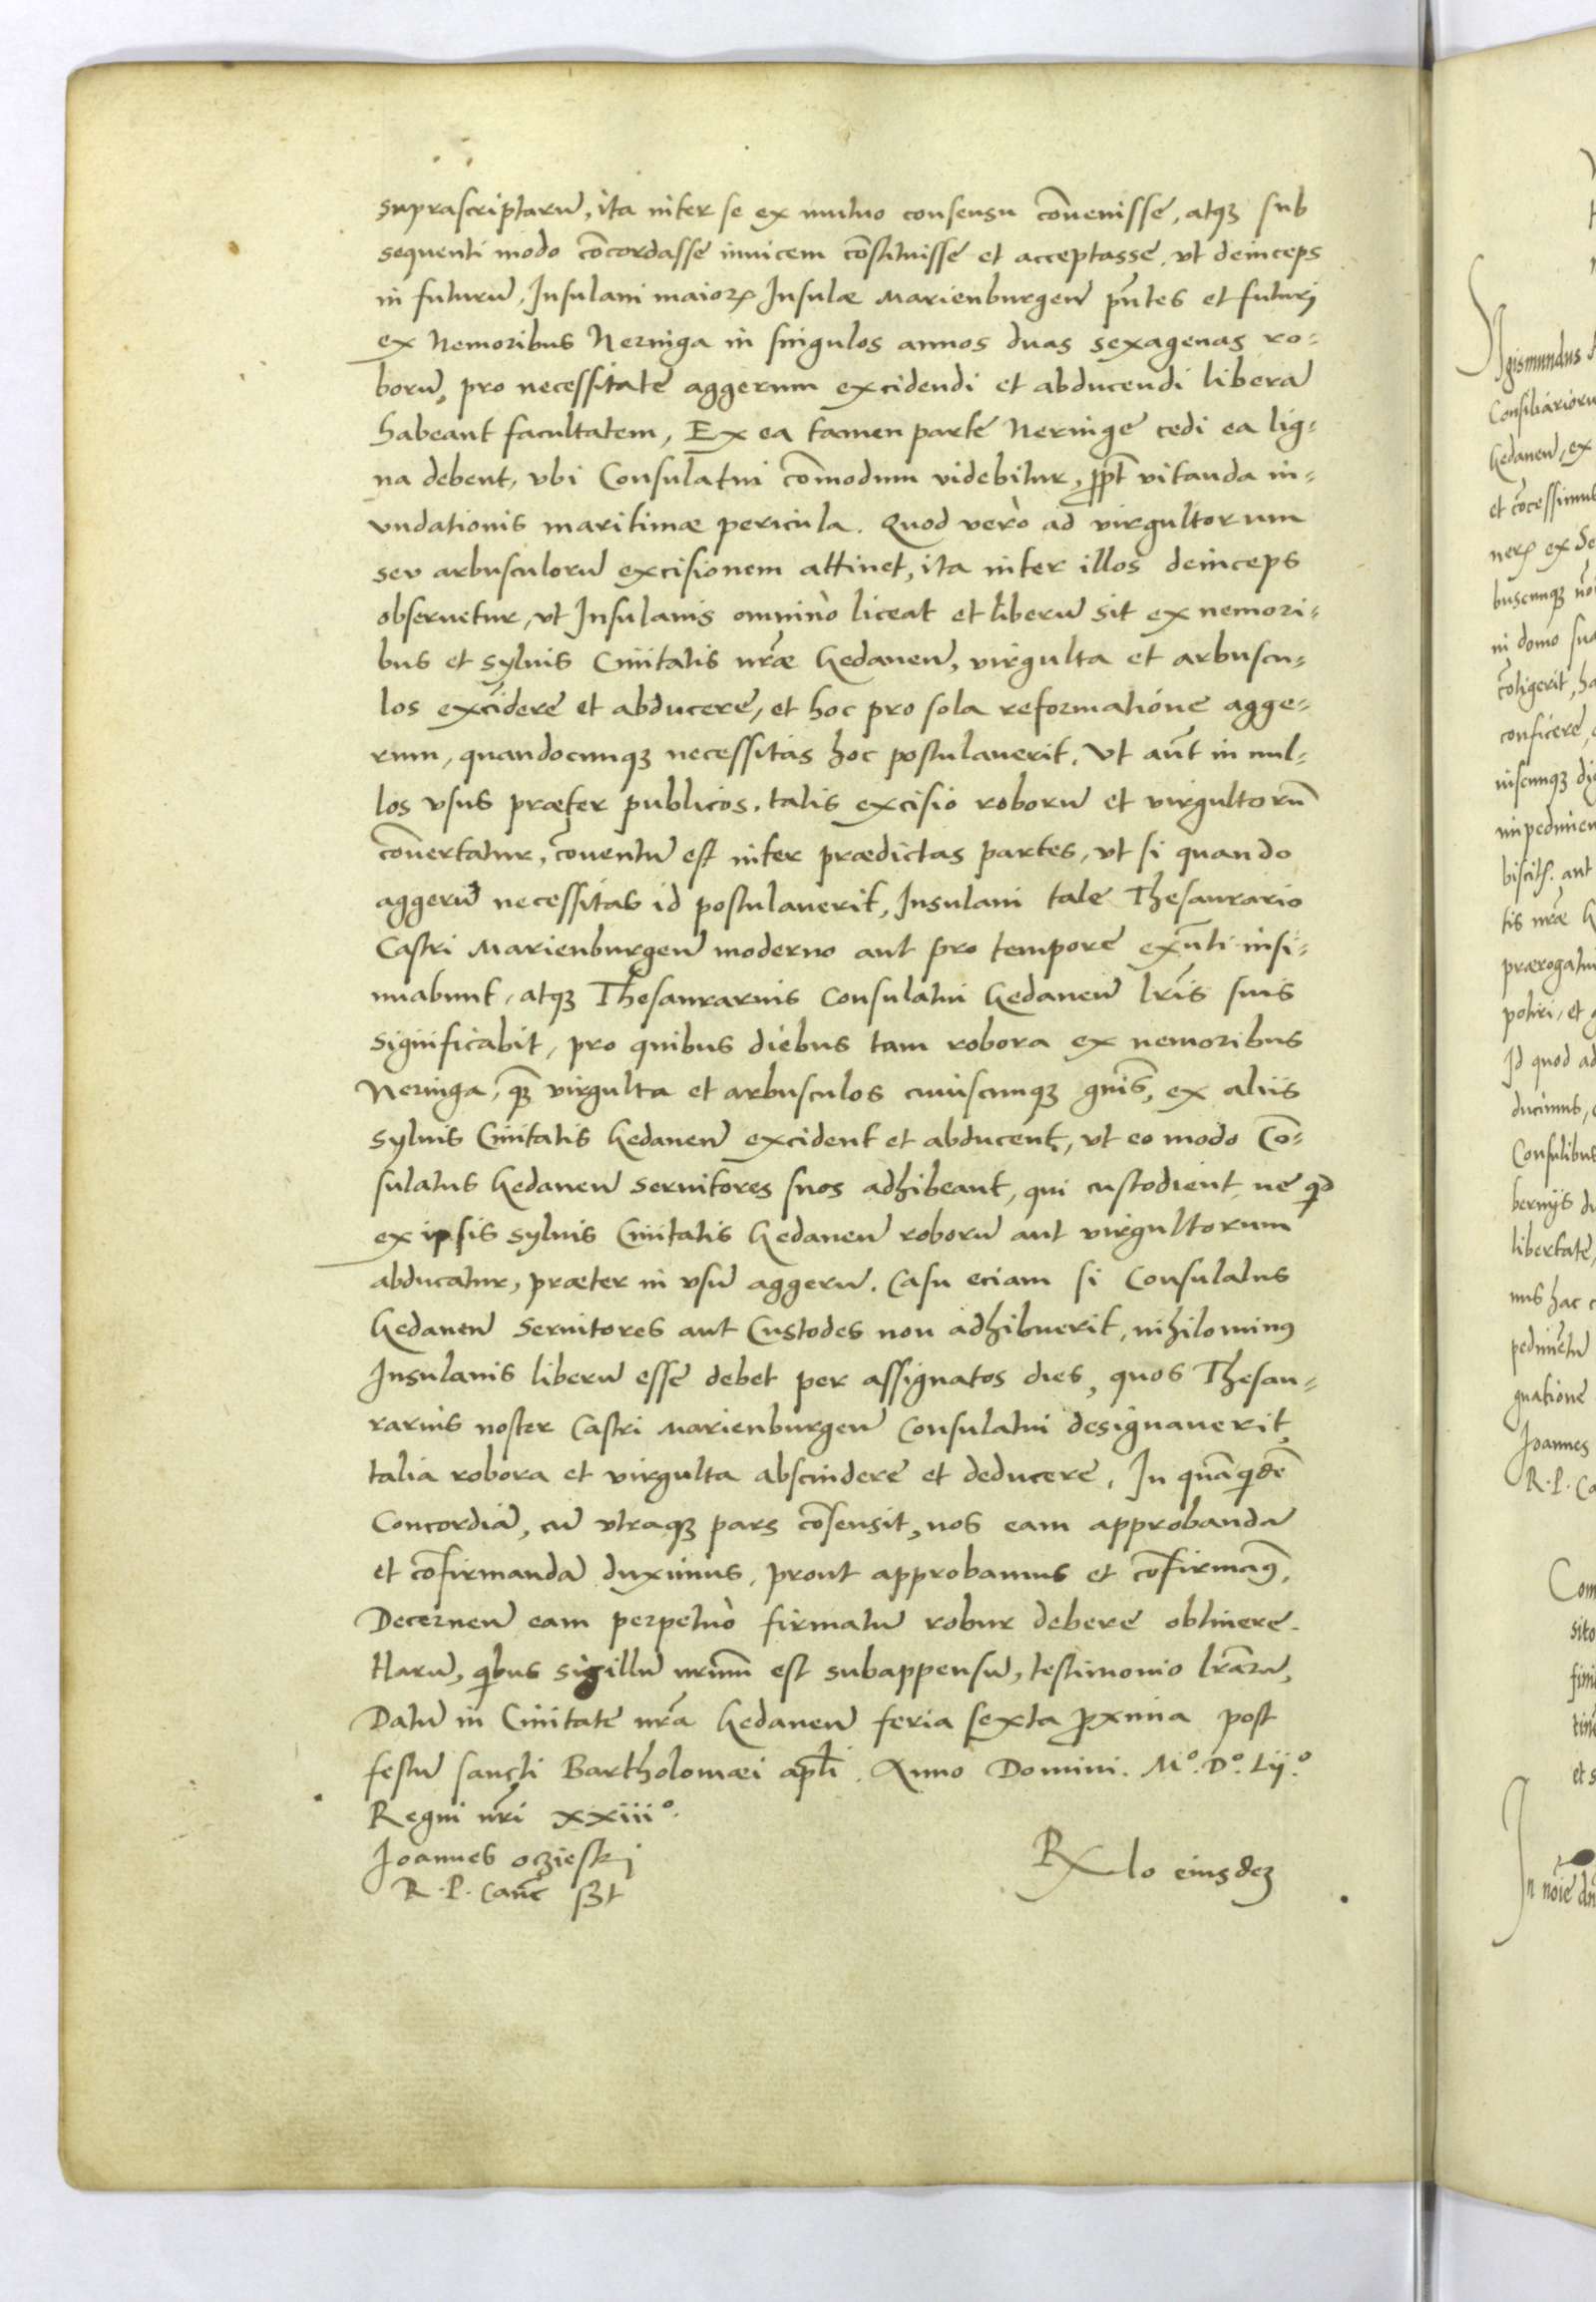 suprascriptarũ, ita inter se ex mutuo consensu cõuenisse, atqꝫ sub
sequenti modo cõcordasse inuicem cõstituisse et acceptasse, vt deinceps
in futurũ, Insulani maioꝝ Insulæ Marienburgeñ pñtes et futurj
ex Nemoribus Neringa in singulos annos duas sexagenas ro-
borũ, pro necessitate aggerum excidendi et abducendi liberã
habeant facultatem, Ex ea tamen parte Neringe cedi ea lig-
na debent, vbi Consulatui cõmodum videbitur, ꝓpt̃ vitanda in-
vndationis maritimæ pericula. Quod verò ad virgultorum
seu arbusculorũ excisionem attinet, ita inter illos deinceps
obseruetur, vt Insulanis omninò liceat et liberũ sit ex nemori-
bus et syluis Ciuitatis nr̃æ Gedaneñ, virgulta et arbuscu-
los excidere et abducere, et hoc pro sola reformatione agge-
rum, quandocunqꝫ necessitas hoc postulauerit. Vt aũt in nul-
los vsus præter publicos, talis excisio roborũ et virgultorũ
cõuertatur, cõuentũ est inter prædictas partes, vt si quando
aggerũ necessitas id postulauerit, Insulani tale Thesaurario
Castri Marienburgeñ moderno aut pro tempore exñti insi-
nuabunt, atqꝫ Thesaurarius Consulatui Gedaneñ lr̃is suis
significabit, pro quibus diebus tam robora ex nemoribus
Neringa, qꝫ virgulta et arbusculos cuiuscunqꝫ gñis, ex aliis
syluis Ciuitatis Gedaneñ excident et abducent, vt eo modo Cõ-
sulatus Gedaneñ seruitores suos adhibeant, qui custodient ne qd
ex ipsis syluis Ciuitatis Gedaneñ roborũ aut virgultorum
abducatur, præter in vsũ aggerũ. Casu eciam si Consulatus
Gedaneñ Seruitores aut Custodes non adhibuerit, nihilominꝰ
Insulanis liberũ esse debet per assignatos dies, quos Thesau-
rarius noster Castri Marienburgeñ Consulatui designauerit,
talia robora et virgulta abscindere et deducere. In quã qdẽ
Concordiã, cũ vtraqꝫ pars cõsensit, nos eam approbandã
et cõfirmandã duximus, prout approbamus et cõfirmamꝰ,
Decerneñ eam perpetuò firmatũ robur debere obtinere.
Harũ, qbus sigillũ nrum̃ est subappensũ, testimonio lr̃arũ,
Datũ in Ciuitate nr̃a Gedaneñ feria sexta ꝓxima post
festũ sancti Bartholomæi apl̃i. Anno Domini. Mº. Dº. Lijº.
Regni nr̃i xxiiiº.
Joannes oczieskj
R. P. Canc̃ sßt
Rlo eiusdeꝫ